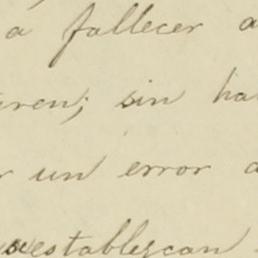 a fallecer a
eren; sin ha
r un error a
establezcan